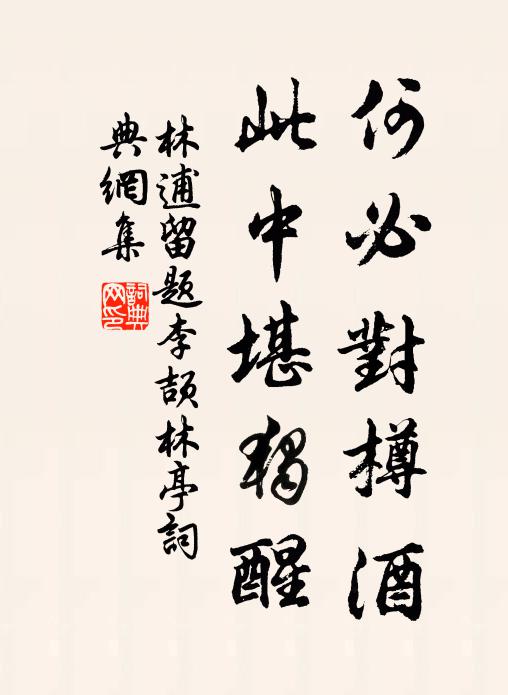 何必對樽酒
此中堪獨醒
林逋留題李頡林亭詞
典網集
詞典
网印